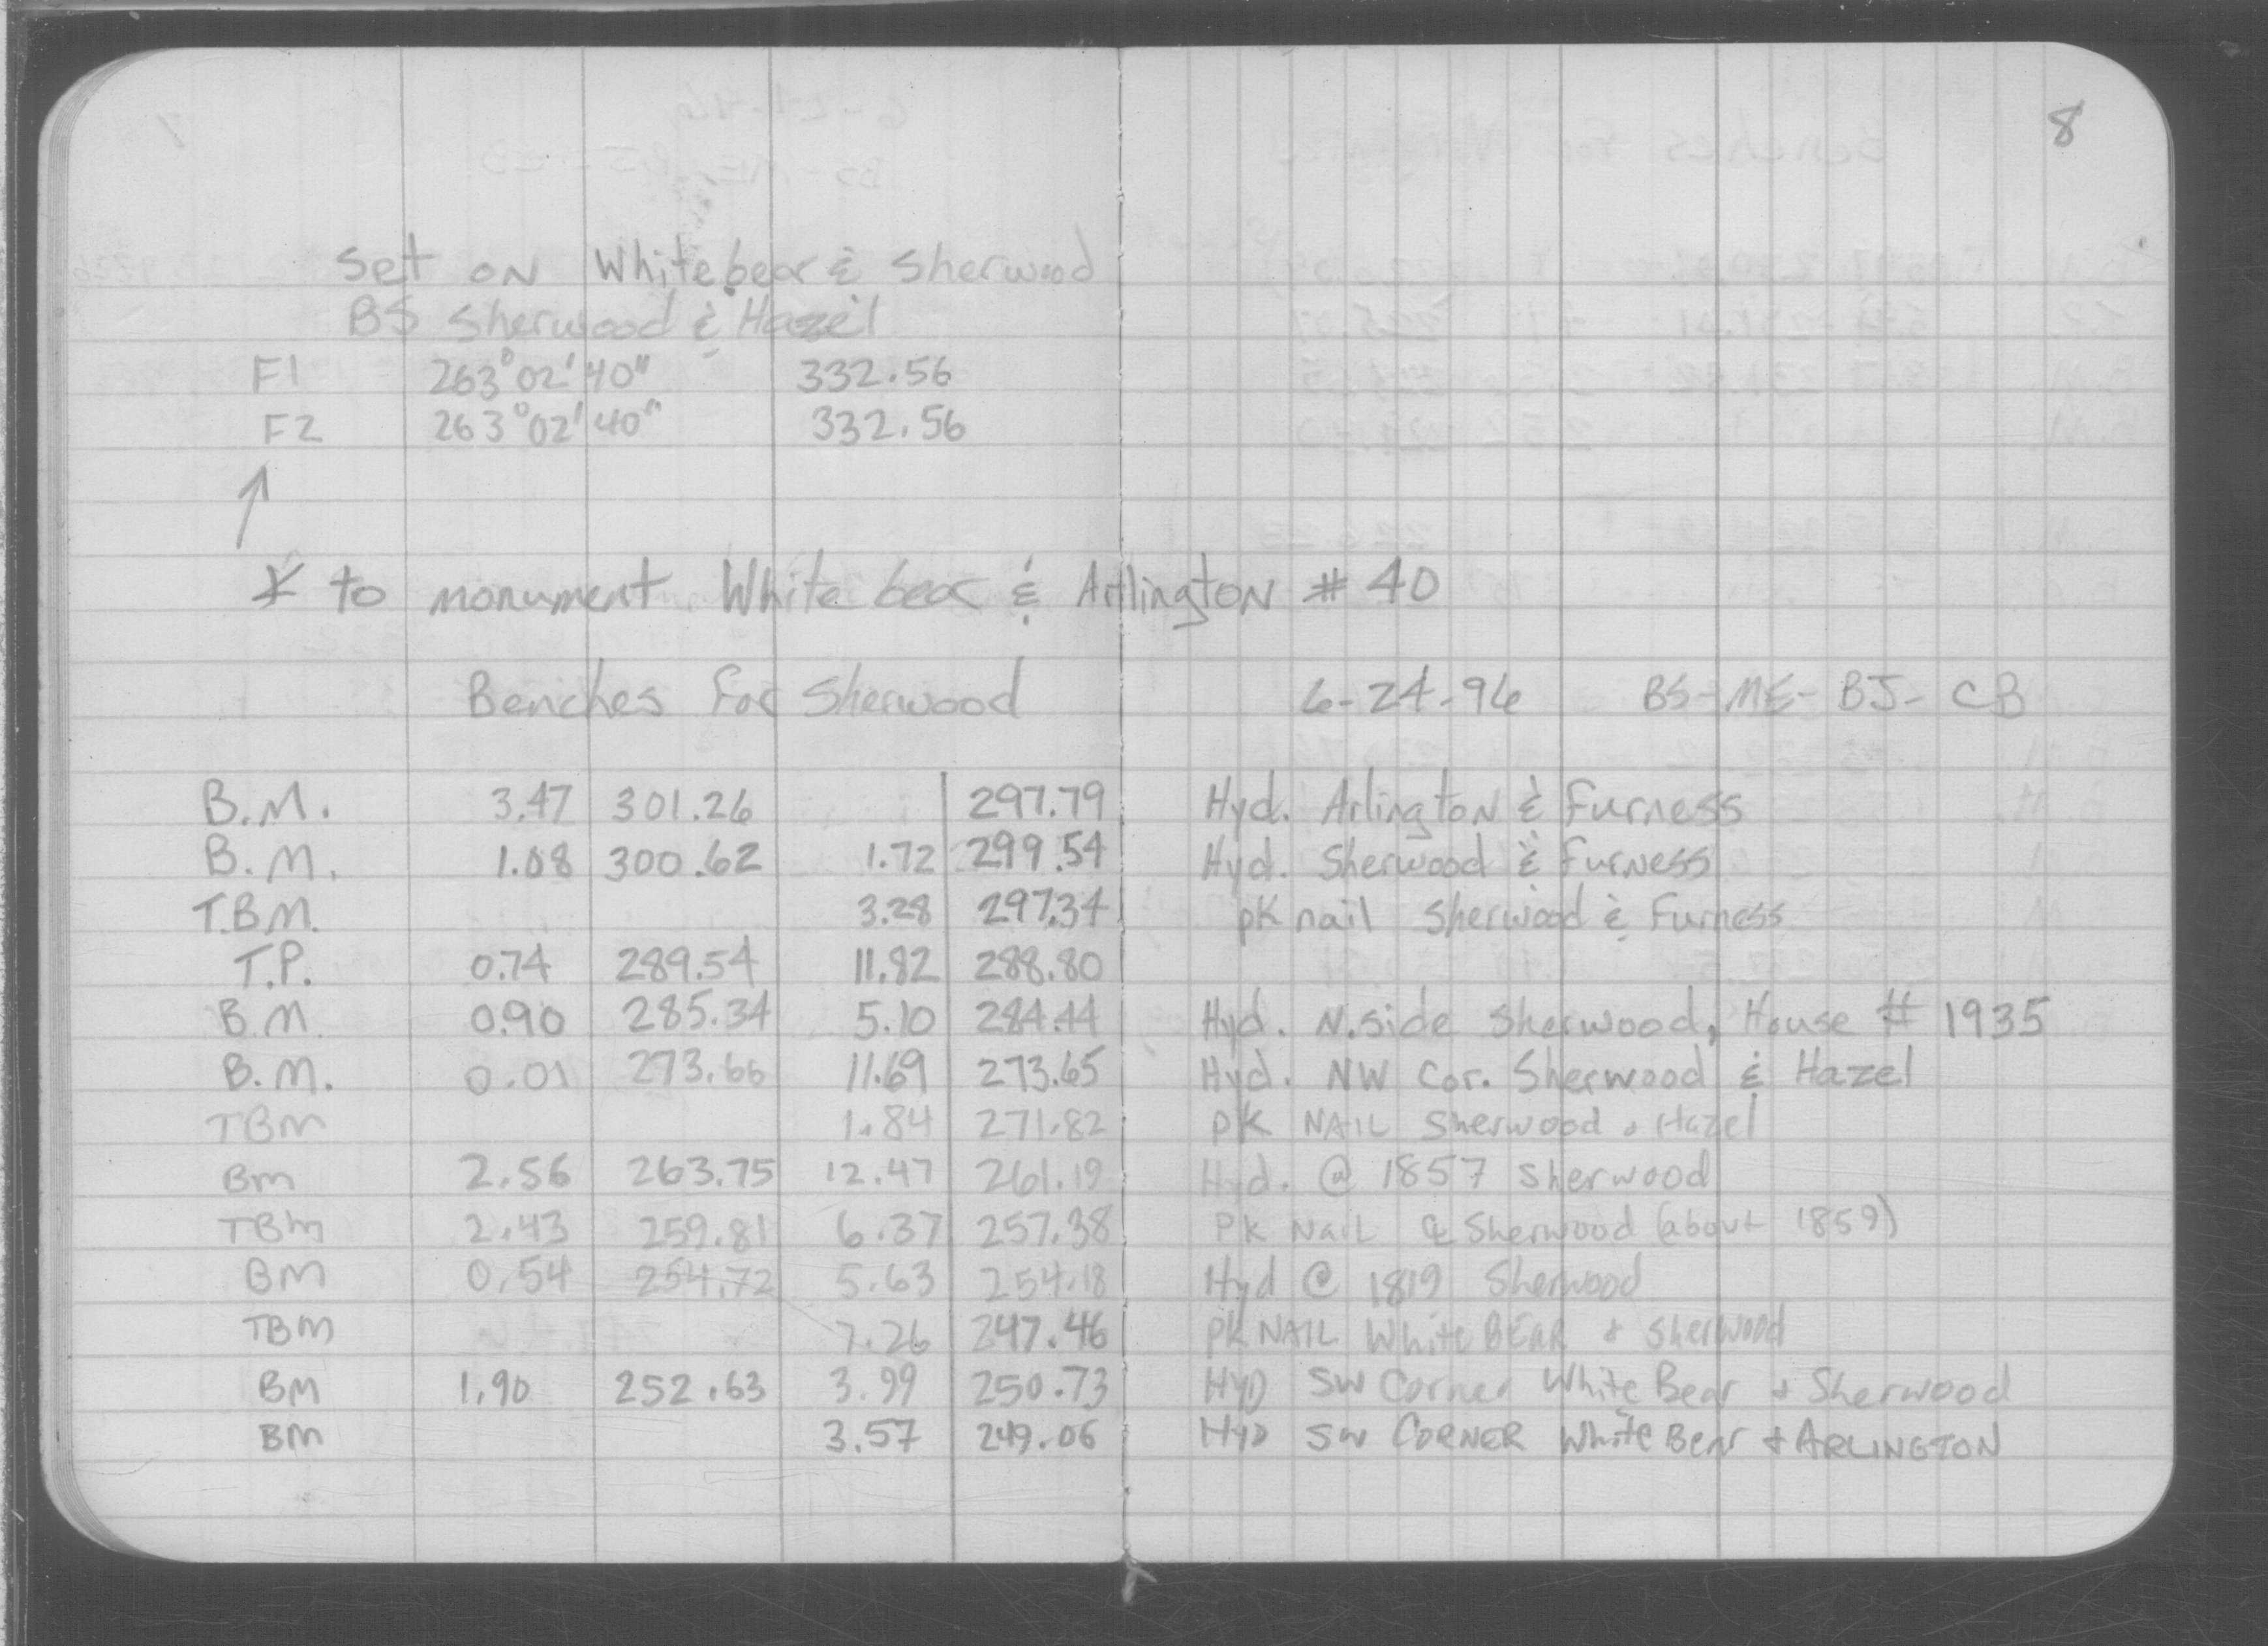 8
Set on Whitebear & Sherwood
BS Sherwood & Hazel
F1 263°02'40" 332.56
F2 263°02'40" 332.56
to monument White bear & Arlington # 40
Benches for Sherwood 6-24-96 BS-ME-BJ-CB
B.M. 3.47 301.26 297.79 Hyd. Arlington & Furness
B.M. 1.08 300.62 1.72 299.54 Hyd. Sherwood & Furness
T.B.M. 3.28 297.34 pK nail Sherwood & Furness
T.P. 0.74 289.54 11.82 288.80
B.M. 0.90 285.34 5.10 284.44 Hyd. N.side Sherwood, House # 1935
B.M. 0.01 273.66 11.69 273.65 Hyd. NW Cor. Sherwood & Hazel
TBM 1.84 271.82 PK NAIL Sherwood & Hazel
BM 2.56 263.75 12.47 261.19 Hyd. @ 1857 Sherwood
TBM 2.43 259.81 6.37 257.38 PK NaiL ℄ Sherwood (about 1859)
BM 0.54 254.72 5.63 254.18 Hyd @ 1819 Sherwood
TBM 7.26 247.46 PK NAIL White BEAR & Sherwood
BM 1.90 252.63 3.99 250.73 HYD SW Corner White Bear & Sherwood
BM 3.57 249.06 HYD SW CORNER White Bear & ARLINGTON